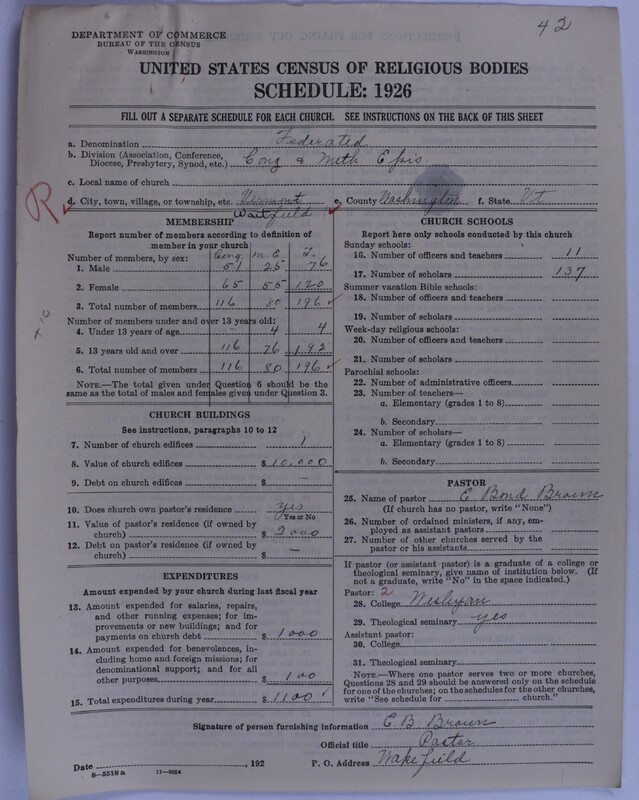 42
DEPARTMENT OF COMMERCE
BUREAU OF THE CENSUS
WASHINGTON
UNITED STATES CENSUS OF RELIGIOUS BODIES
SCHEDULE: 1926
FILL OUT A SEPARATE SCHEDULE FOR EACH CHURCH. SEE INSTRUCTIONS ON THE BACK OF THIS SHEET
a. Denomination Federated
b. Division (Association, Conference, Diocese, Presbytery, Synod, etc.) Cong & Meth Epis
c. Local name of church
R
d. City, town, village, or township, etc. Waitsfield e. County Washington f. State Vt
MEMBERSHIP
Report number of members according to definition of
member in your church
Number of members, by sex: Cong. M.E. T.
1. Male 51 25 76
2. Female 65 55 120
3. Total number of members 116 80 196
Number of members under and over 13 years old:
4. Under 13 years of age - 4 4
5. 13 years old and over 116 76 192
6. Total number of members 116 80 196
NOTE.—The total given under Question 6 should be the
same as the total of males and females given under Question 3.
CHURCH BUILDINGS
See instructions, paragraphs 10 to 12
7. Number of church edifices 1
8. Value of church edifices $ 10,000
9. Debt on church edifices $ -
10. Does church own pastor's residence yes
Yes or No
11. Value of pastor's residence (if owned by
church) $ 2000
12. Debt on pastor's residence (if owned by
church) $ -
EXPENDITURES
Amount expended by your church during last fiscal year
13. Amount expended for salaries, repairs,
and other running expenses; for im-
provements or new buildings; and for
payments on church debt $ 1000
14. Amount expended for benevolences, in-
cluding home and foreign missions; for
denominational support; and for all
other purposes $ 100
15. Total expenditures during year $ 1100
CHURCH SCHOOLS
Report here only schools conducted by this church
Sunday schools:
16. Number of officers and teachers 11
17. Number of scholars 137
Summer vacation Bible schools:
18. Number of officers and teachers
19. Number of scholars
Week-day religious schools:
20. Number of officers and teachers
21. Number of scholars
Parochial schools:
22. Number of administrative officers
23. Number of teachers—
a. Elementary (grades 1 to 8)
b. Secondary
24. Number of scholars—
a. Elementary (grades 1 to 8)
b. Secondary
PASTOR
25. Name of pastor E. Bond Brown
(If church has no pastor, write "None")
26. Number of ordained ministers, if any, em-
ployed as assistant pastors
27. Number of other churches served by the
pastor or his assistants
If pastor (or assistant pastor) is a graduate of a college or
theological seminary, give name of institution below. (If
not a graduate, write "No" in the space indicated.)
Pastor: 2
28. College Weslyan
29. Theological seminary yes
Assistant pastor:
30. College
31. Theological seminary
NOTE.—Where one pastor serves two or more churches,
Questions 28 and 29 should be answered only on the schedule
for one of the churches; on the schedules for the other churches,
write "See schedule for church."
Signature of person furnishing information E. B. Brown
Official title Pastor
Date , 192 P. O. Address Wakefield
8—5518 a 11—9584